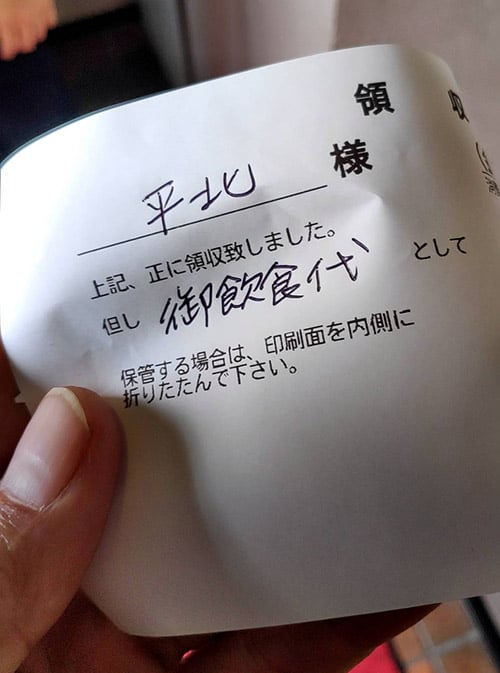 領収
平北 様
上記、正に領収致しました。
但し 御飲食代 として
保管する場合は、印刷面を内側に
折りたたんで下さい。